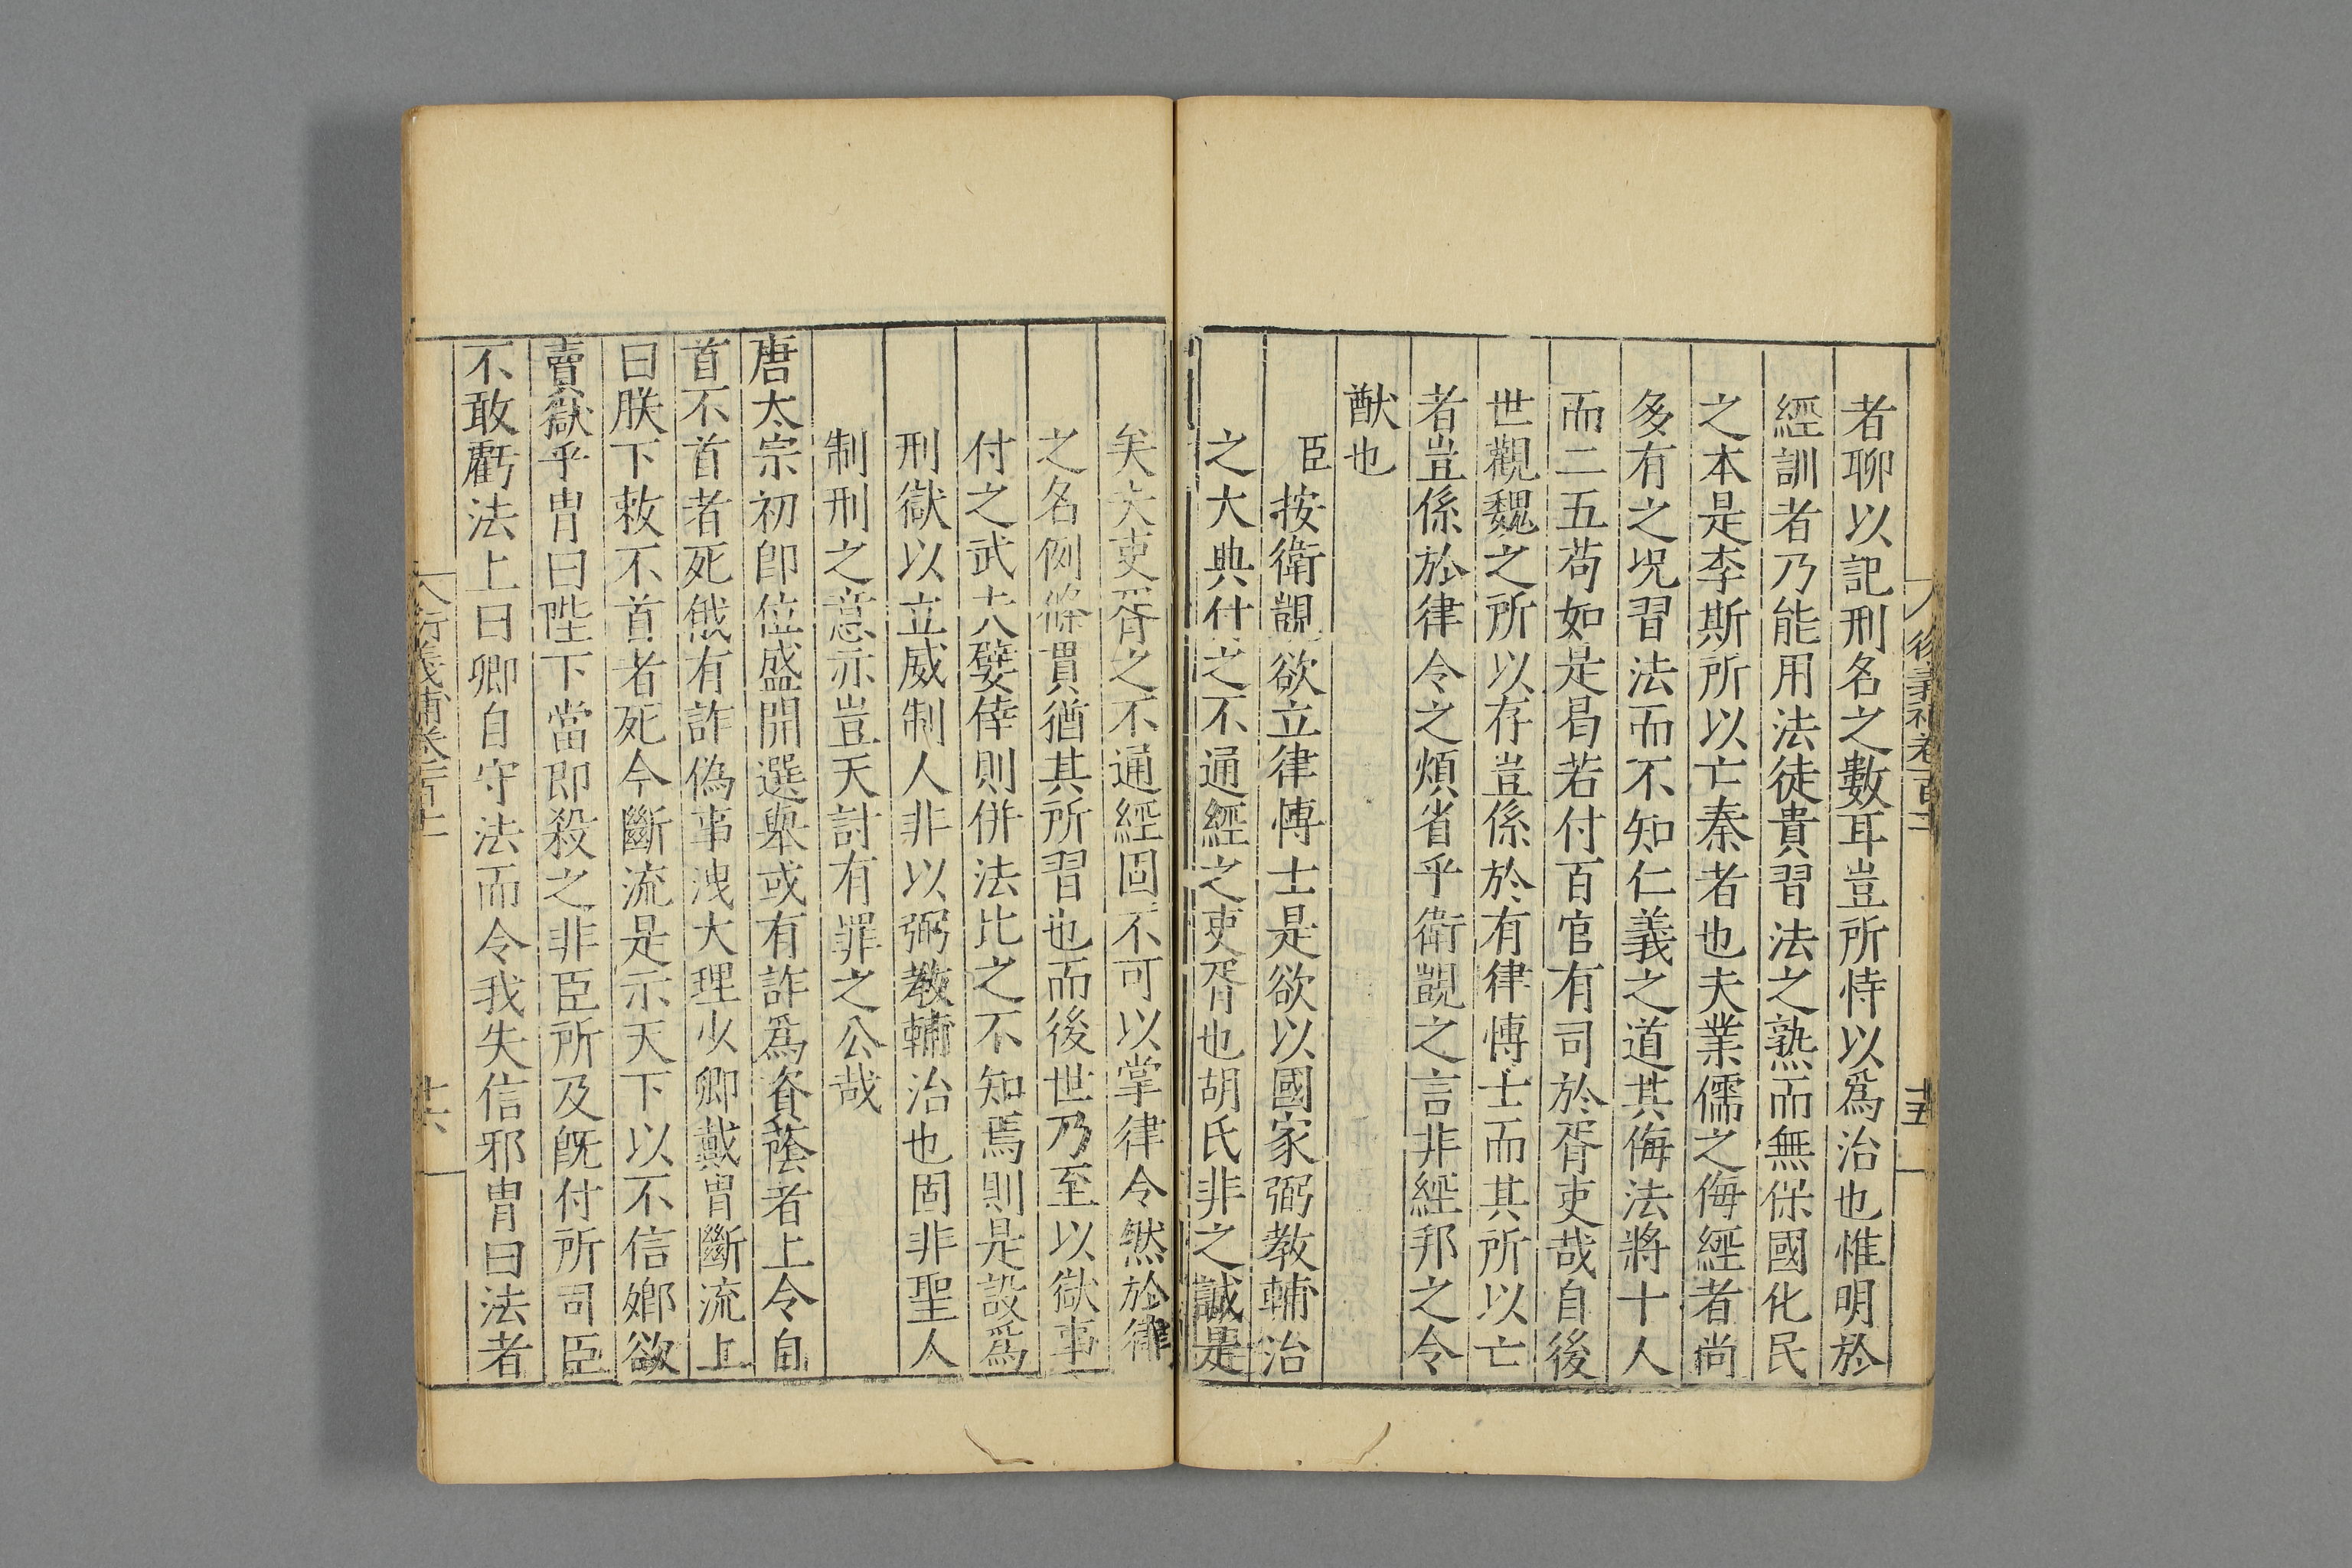 者聊以記刑名之數耳豈所恃以爲治也惟明於
經訓者乃能用法徒貴習法之熟而無保國化民
之本是李斯所以亡秦者也夫業儒之侮經者尚
多有之况習法而不知仁義之道其侮法將十人
而二五苟如是曷若付百官有司於胥吏哉自後
世觀魏之所以存豈係於有律博士而其所以亡
者豈係於律令之煩省乎衛覬之言非經邦之令
猷也
臣按衛覬欲立律博士是欲以國家弼教輔治
之大典付之不通經之吏胥也胡氏非之誠是
矣夫吏胥之不通經固不可以掌律令然於律
之名例條貫猶其所習也而後世乃至以獄事
付之武夫嬖倖則併法比之不知焉則是設爲
刑獄以立威制人非以弼教輔治也固非聖人
制刑之意示豈天討有罪之公哉
唐太宗初即位盛開選舉或有詐爲資蔭者上令自
首不首者死俄有詐偽事洩大理少卿戴冑斷流上
曰朕下敕不首者死今斷流是示天下以不信卿欲
賣獄乎冑曰陛下當即殺之非臣所及旣付所司臣
不敢虧法上曰卿自守法而令我失信邪冑曰法者